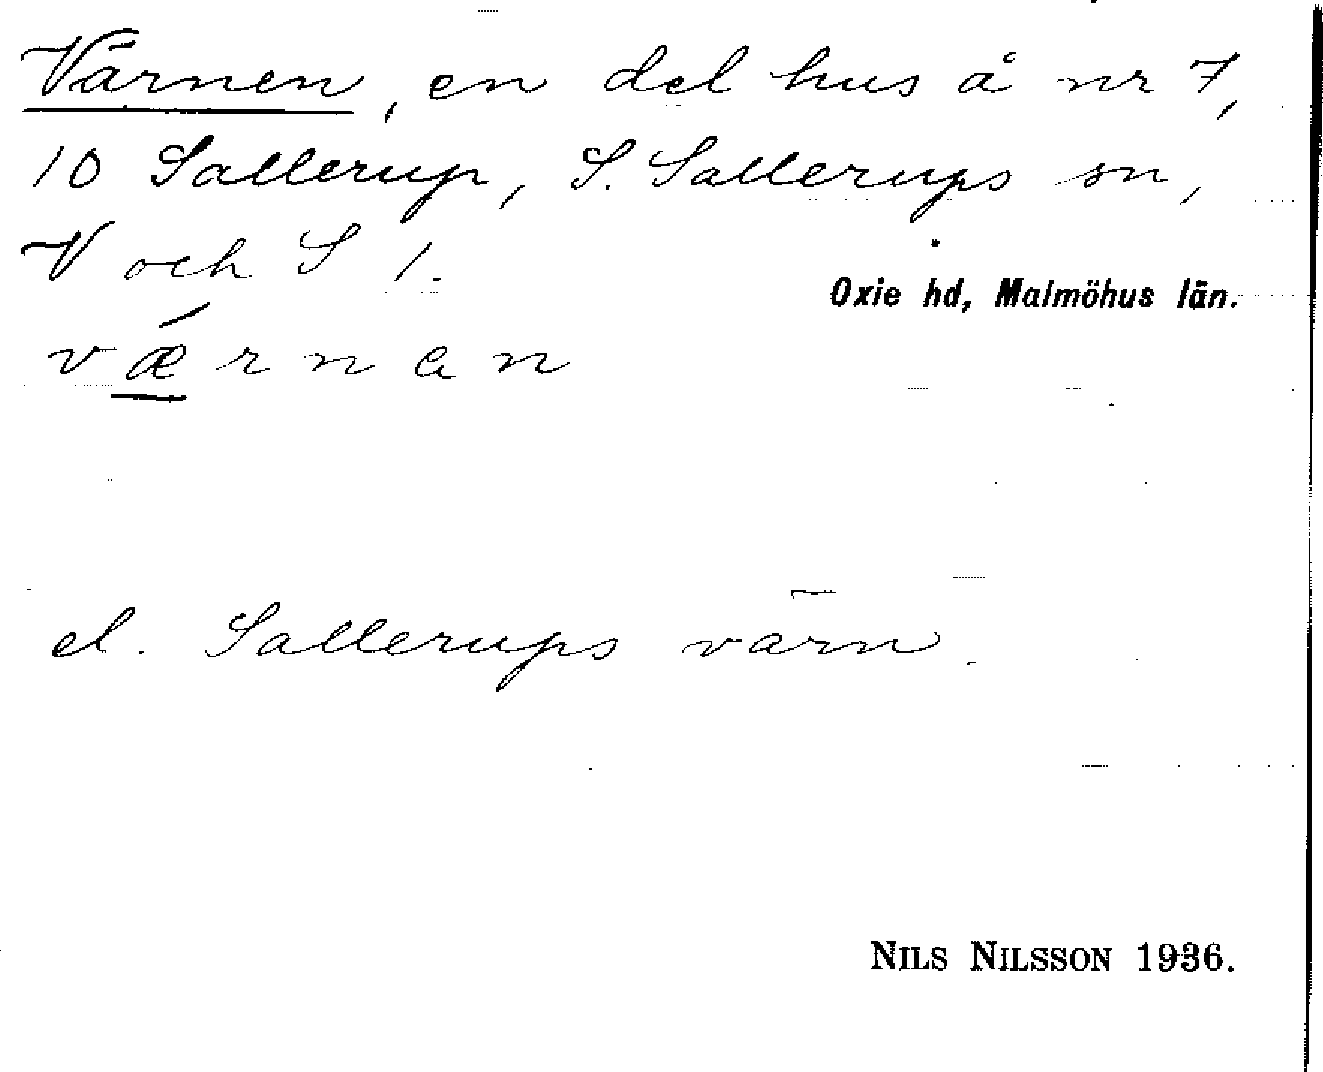 Värnen, en del hus å nr 7,
10 Sallerup, S. Sallerups sn,
V och S 1.
Oxie hd, Malmöhus län.
v ǽ r n a n
el. Sallerups värn.
NILS NILSSON 1936.